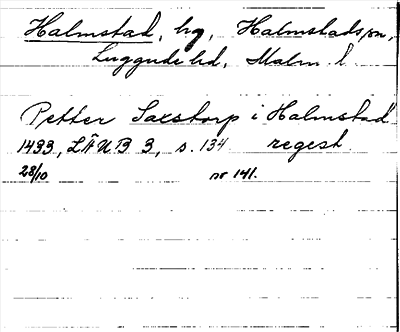 Halmstad, by, Halmstads sn,
Luggude hd, Malm. l.
Petter Saxstorp i Halmstad
1433, LÄUB 3, s. 134 regest
28/10 nr 141.